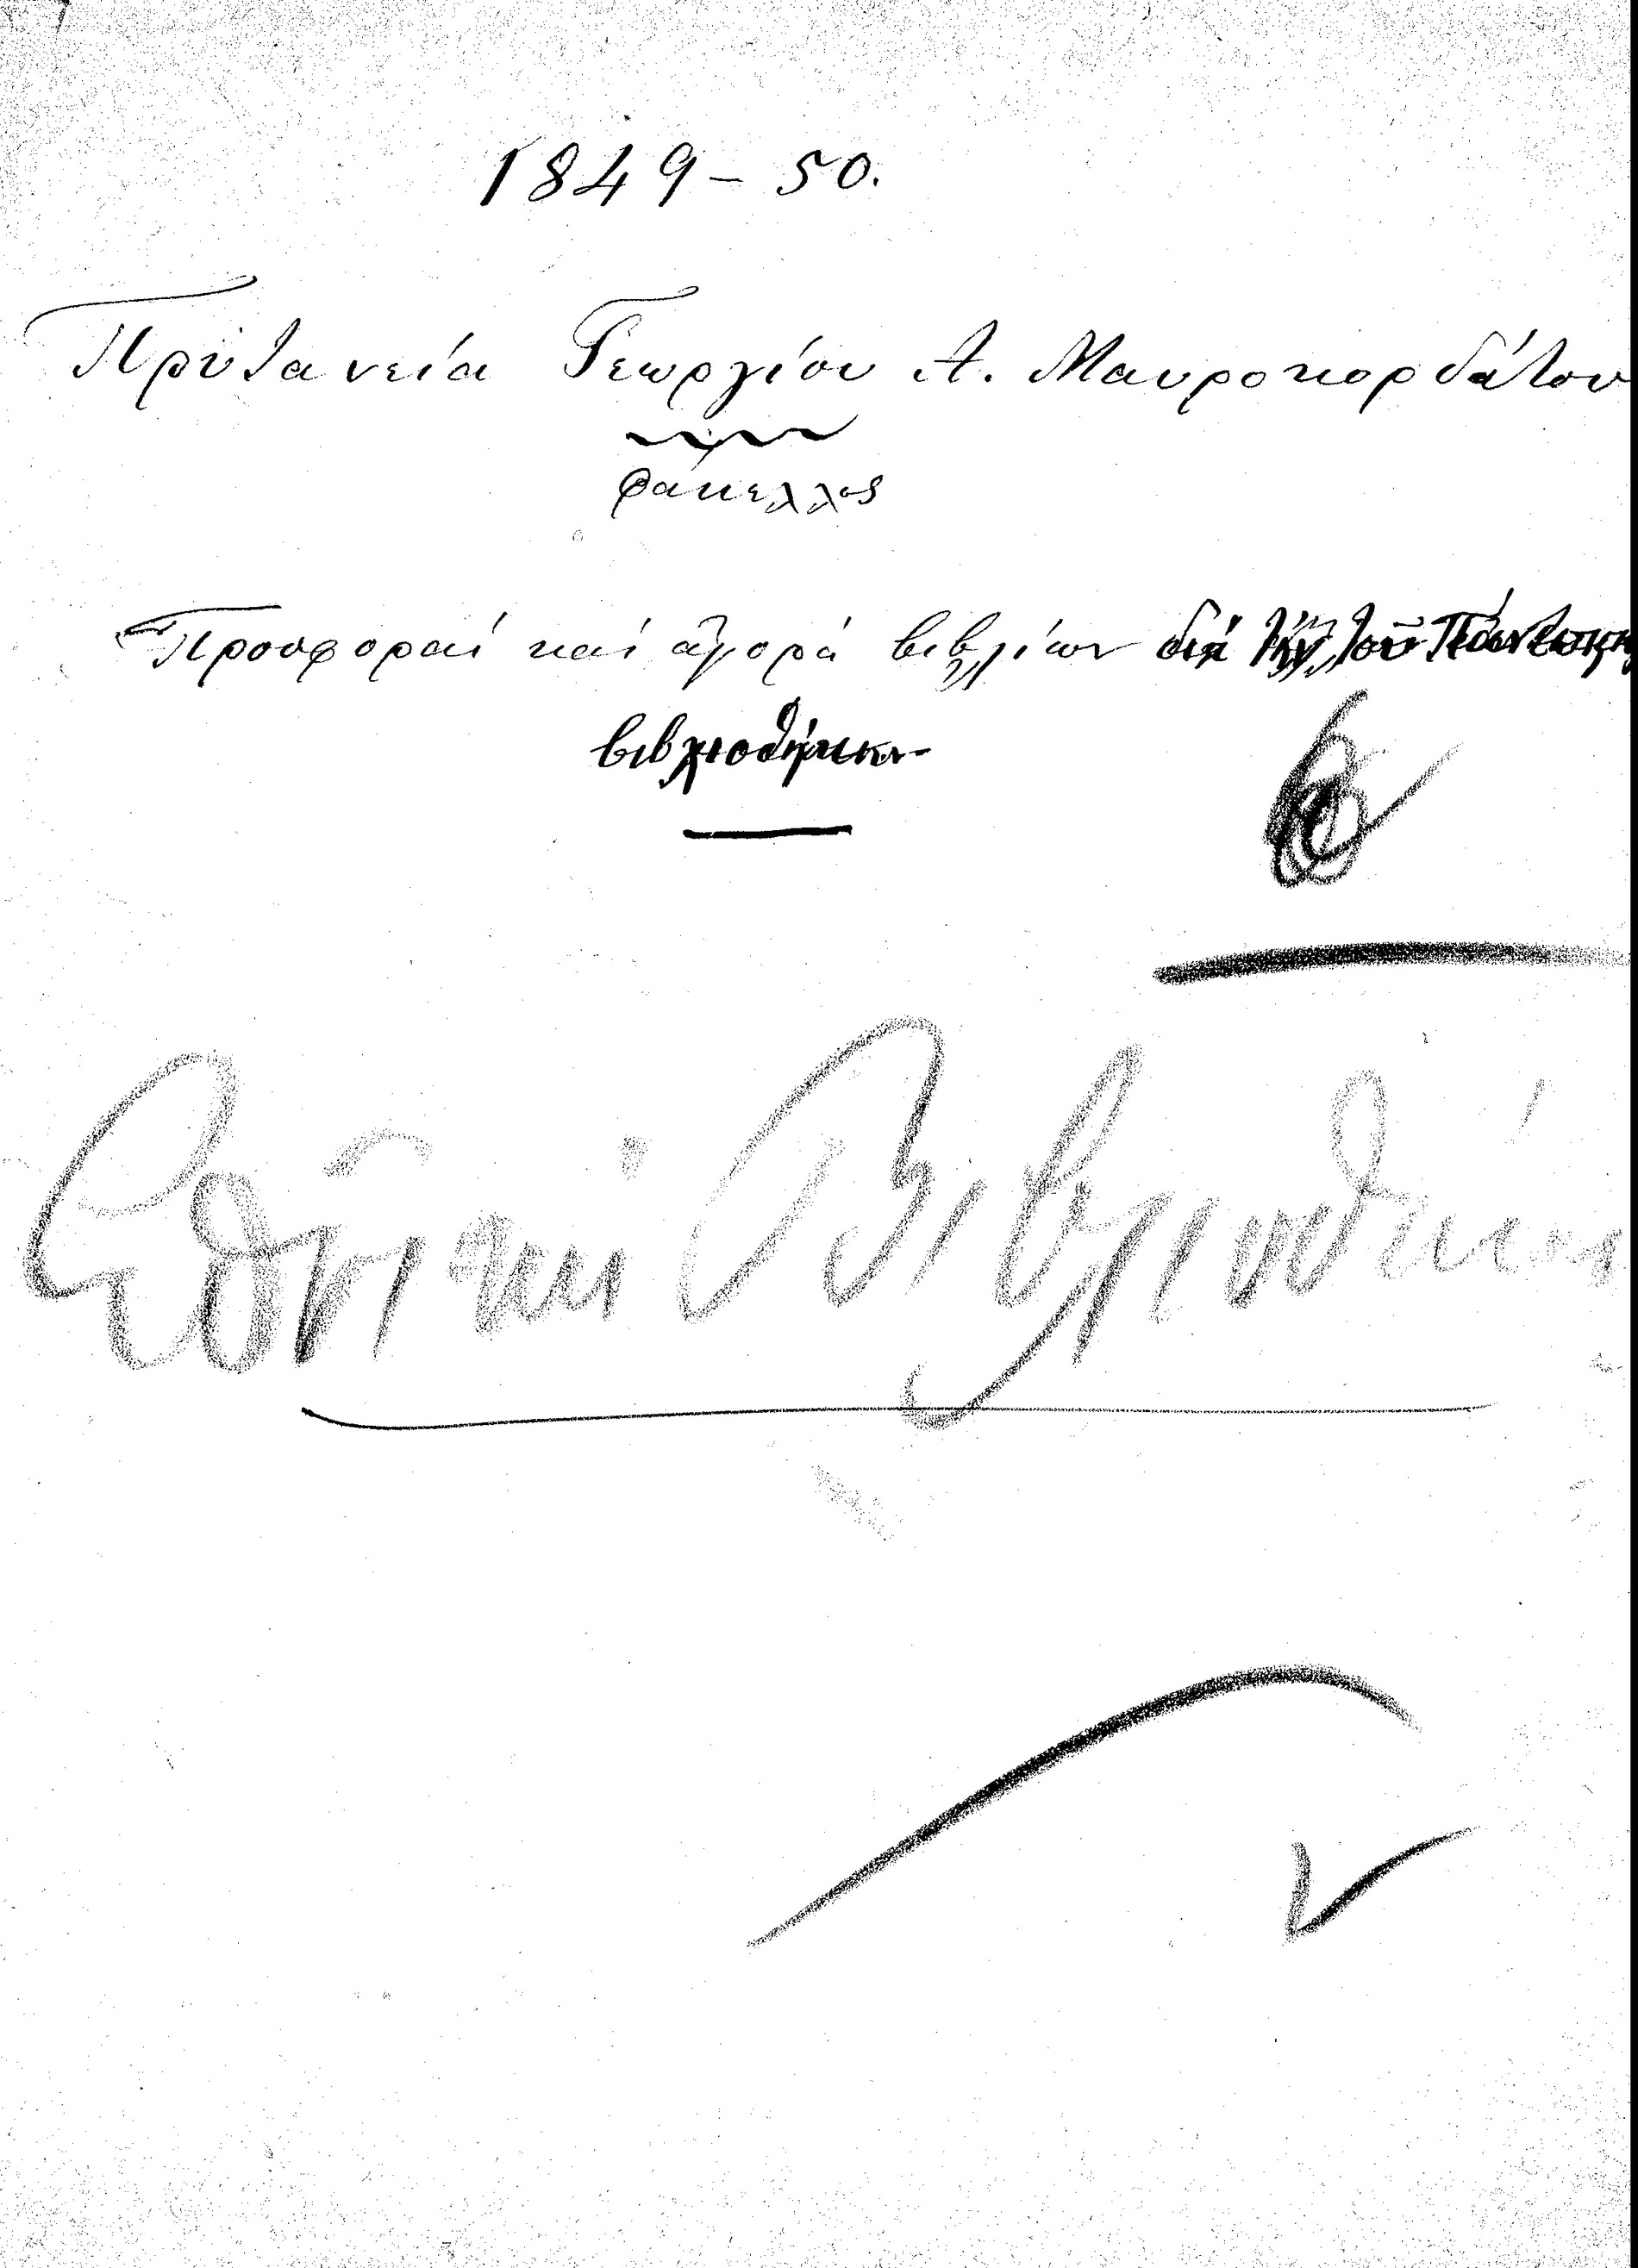 1849 - 50.
Πρυτανεία Γεωργίου Α. Μαυροκορδάτου
φάκελλος
Προσφοραί καί ἀγορά βιβλίων διά τήν τοῦ
βιβλιοθήκην
Ἐθνικὴ Βιβλιοθήκη